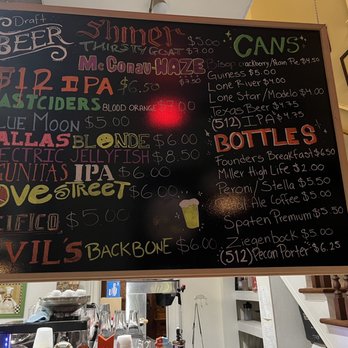 Draft
BEER
Shiner $5.00
THIRSTY GOAT $7.00
McConauHAZE $7.50
512 IPA $6.50
EASTCIDERS BLOOD ORANGE $7.00
BLUE MOON $5.00
DALLAS BLONDE $6.00
ELECTRIC JELLYFISH $8.50
LAGUNITAS IPA $6.00
Love STREET $6.00
PACIFICO $5.00
DEVIL'S BACKBONE $6.00
CANS
Bishop Crackberry/Pecan Pie $4.50
Guiness $5.00
Lone River $4.00
Lone Star/Modelo $4.00
Texas Beer $4.75
(512) IPA $4.75
BOTTLES
Founders Breakfast $6.50
Miller High Life $2.00
Peroni/Stella $5.50
Ale Coffee $5.00
Spaten Premium $5.50
Ziegenbock $5.00
(512) Pecan Porter $6.25